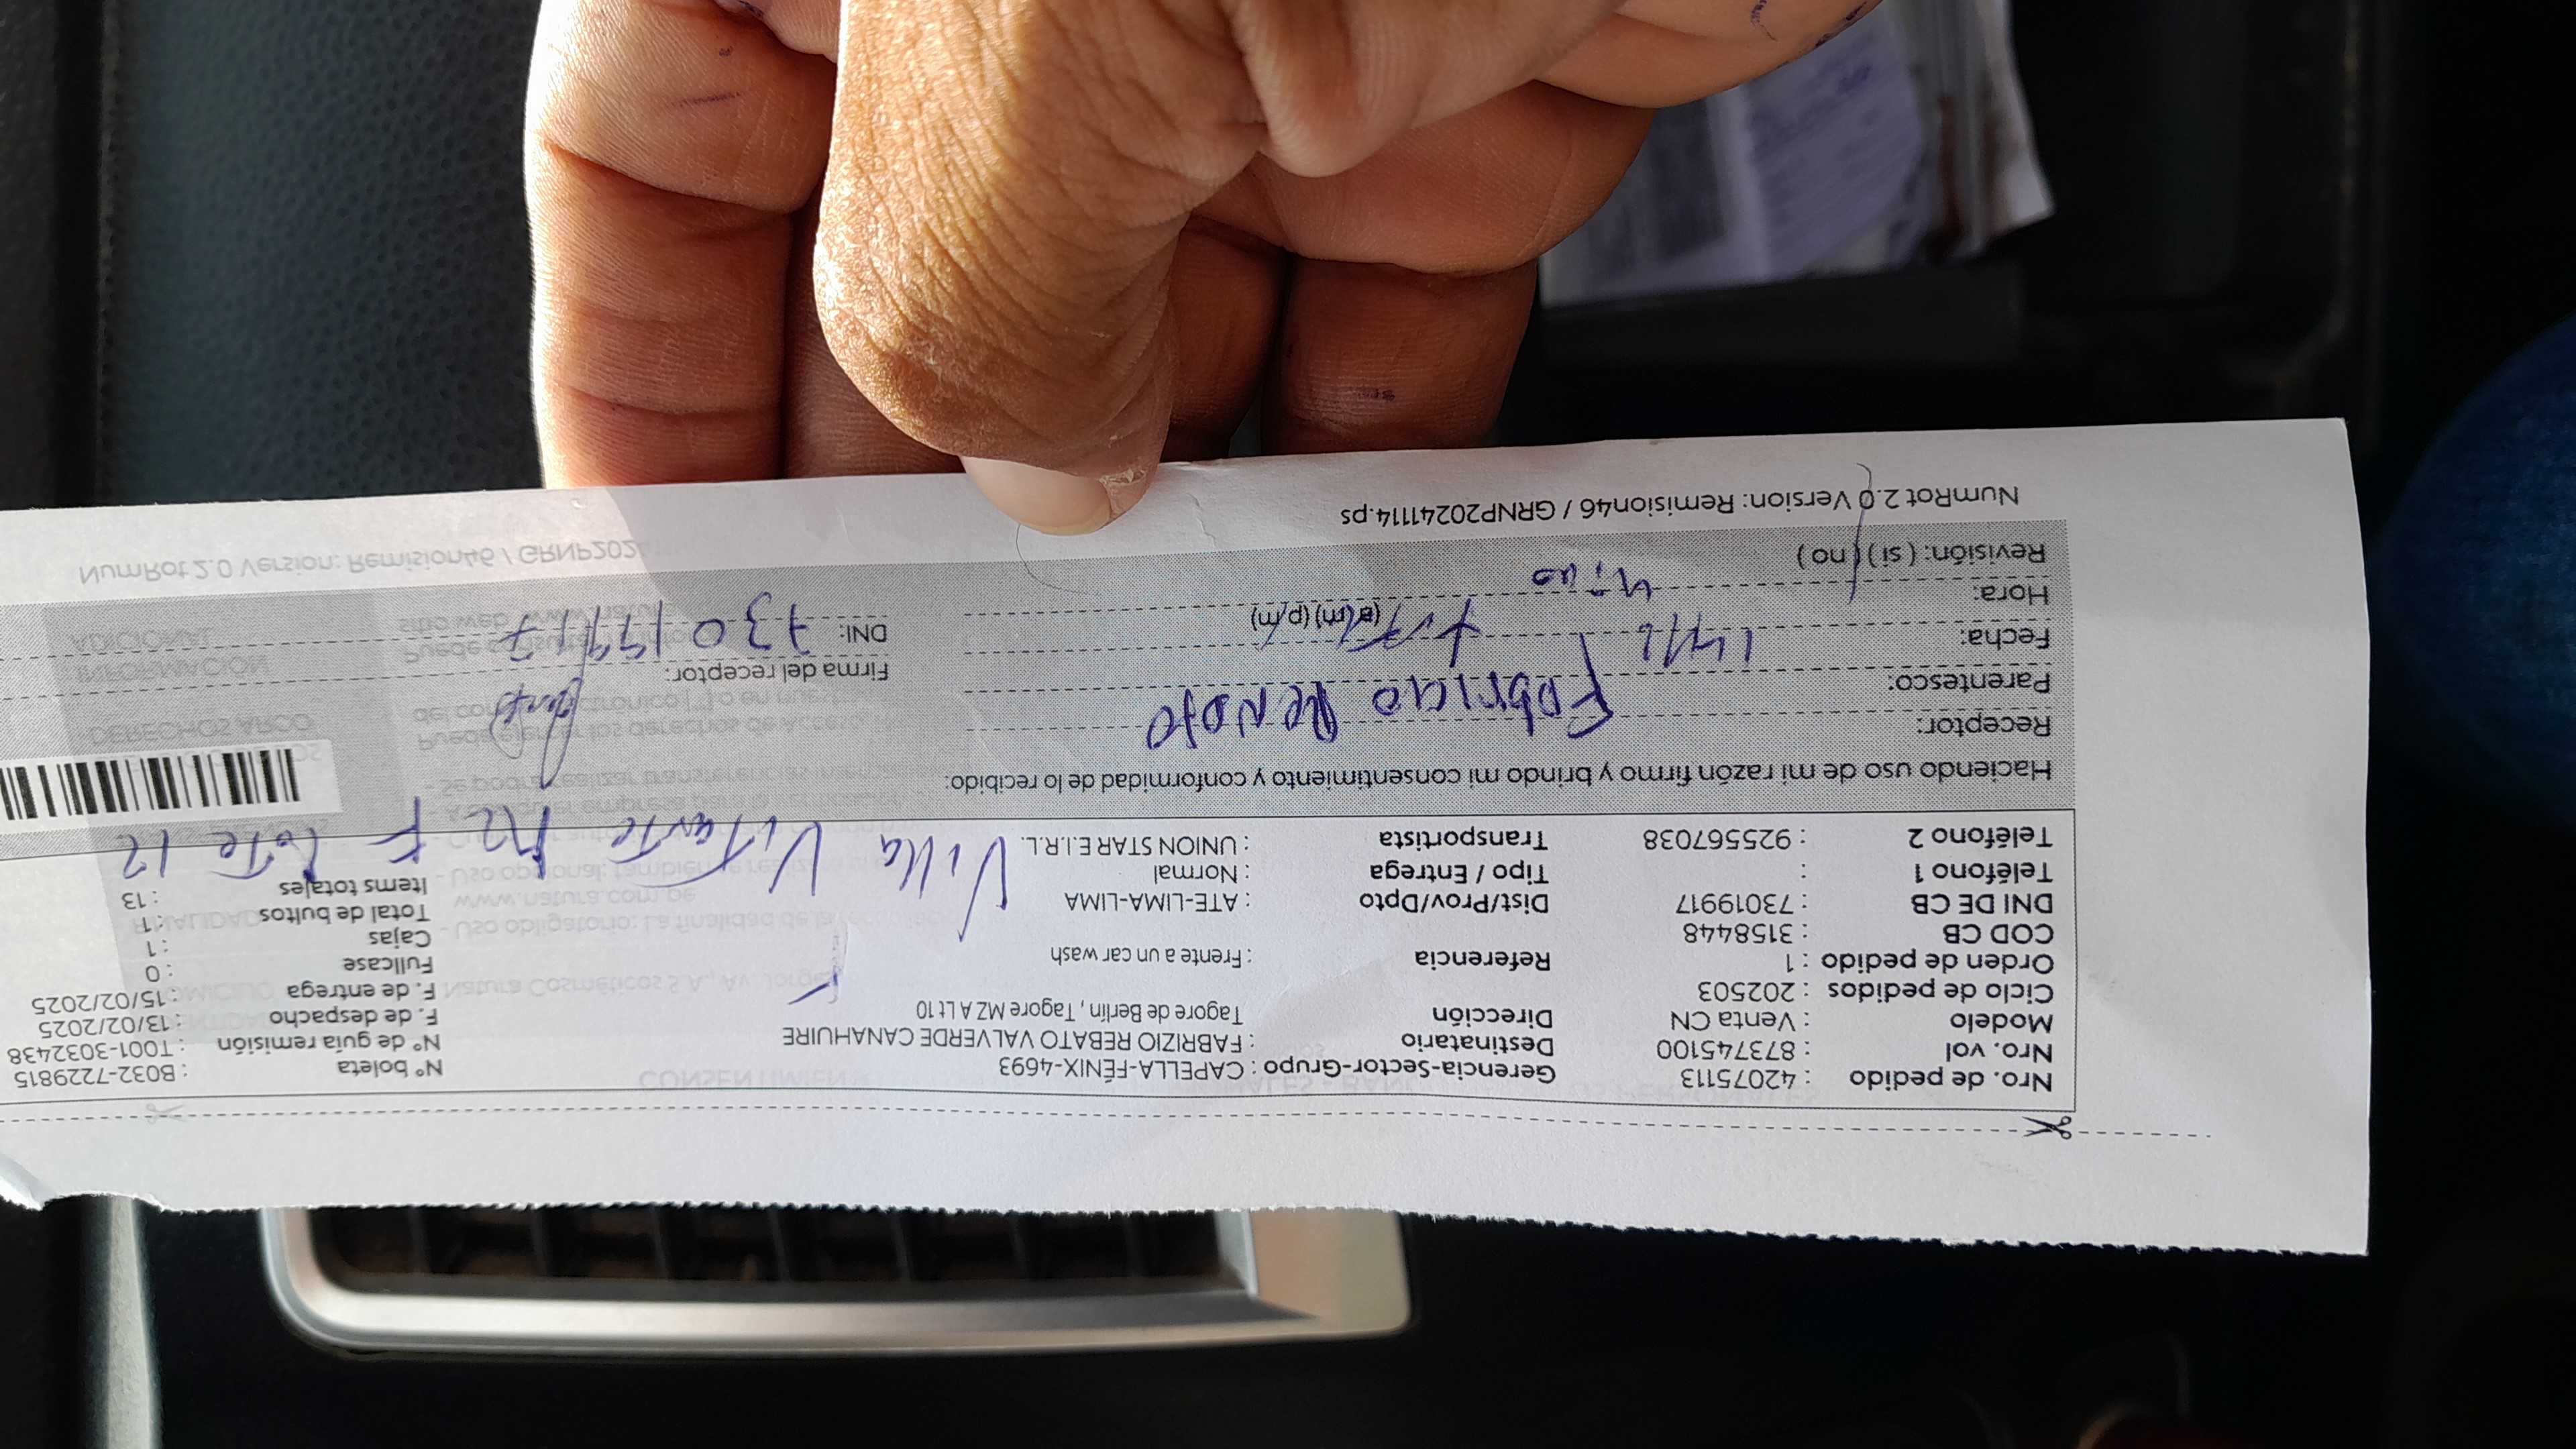 Nro. de pedido : 42075113 Gerencia-Sector-Grupo : CAPELLA-FÉNIX-4693 N° boleta : B032-7229815
Nro. vol : 873745100 Destinatario : FABRIZIO REBATO VALVERDE CANAHUIRE N° de guía remisión : T001-3032438
Modelo : Venta CN Dirección Tagore de Berlin , Tagore MZ A Lt 10 F. de despacho : 13/02/2025
Ciclo de pedidos : 202503 F. de entrega : 15/02/2025
Orden de pedido : 1 Referencia : Frente a un car wash Fullcase : 0
COD CB : 3158448 Cajas : 1
DNI DE CB : 73019917 Dist/Prov/Dpto : ATE-LIMA-LIMA Total de bultos : 1
Teléfono 1 : Tipo / Entrega : Normal Items totales : 13
Teléfono 2 : 925567038 Transportista : UNION STAR E.I.R.L.
Villa Vitarte Mz F Lote 12
Haciendo uso de mi razón firmo y brindo mi consentimiento y conformidad de lo recibido:
Receptor: Fabricio
Parentesco:
Firma del receptor:
Fecha: 14/2
DNI: 73019917
Hora: (a/m) (p/m)
Revisión: ( si ) ( no )
NumRot 2.0 Version: Remision46 / GRNP20241114.ps